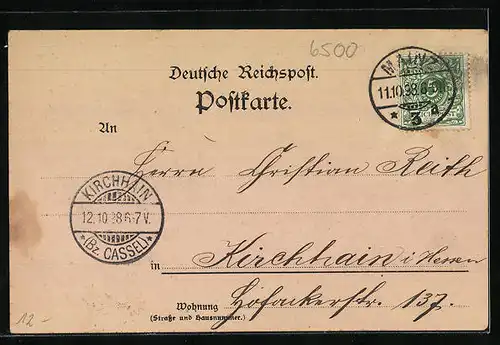 6500
Deutsche Reichspost.
Postkarte.
MAINZ
11.10.98.6-7
* 3 a
An
Herrn Christian Reith
KIRCHHAIN
12.10.98.6-7V.
*(Bz. CASSEL)*
in Kirchhain i/Hessen
Wohnung Hofackerstr. 137.
(Straße und Hausnummer.)
12-